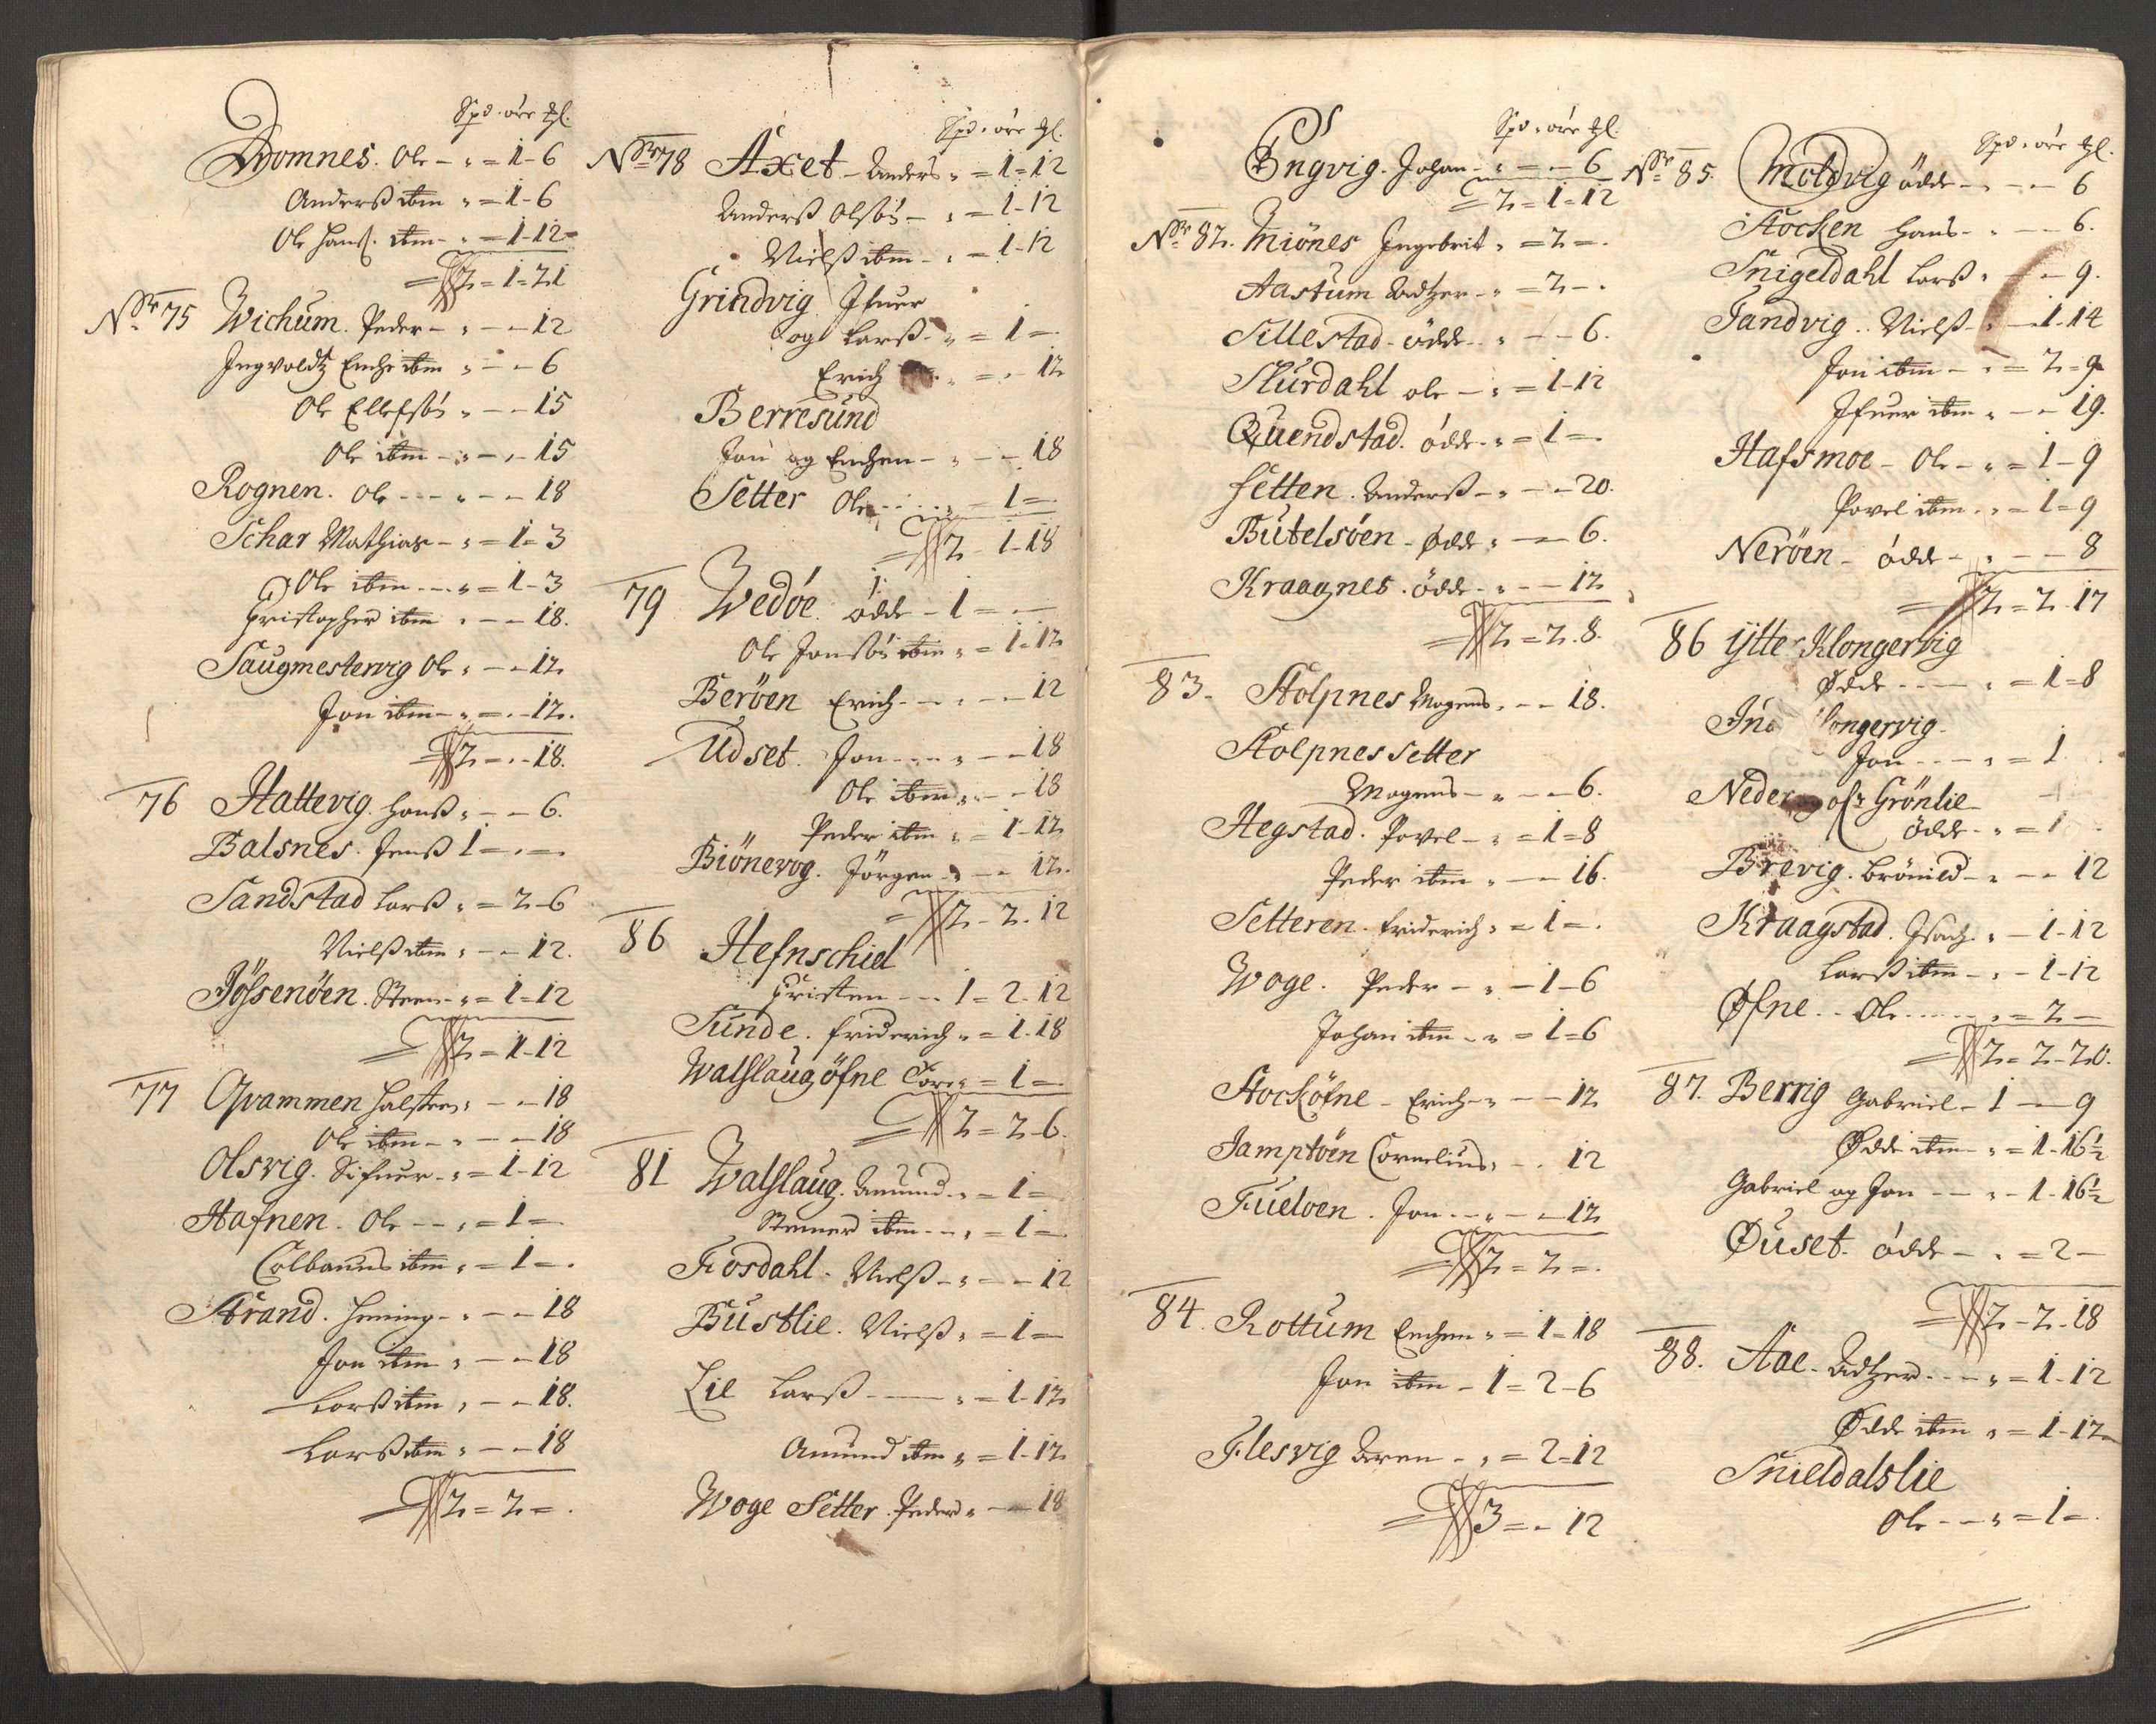 Spd. öre Ꝣl.
Dromnes. Ole - „ = 1 - 6
Anderß ibm „ = 1 - 6
Ole Hanß. ibm - „ = 1 - 12
= 2 = 1 = 21
Nr 75 Wichum. Peder - „ - - 12
Ingvoldz Enche ibm „ - - 6
Ole Ellefsön „ - - 15
Ole ibm - „ - - 15
Rognen. Ole - - - „ - - 18
Schar Mathias - „ = 1 = 3
Ole ibm - - „ = 1 - 3
Christopher ibm „ - - 18.
Saugmestervig Ole „ - - 12
Jon ibm - „ = - 12.
= 2 = - 18.
76 Hattevig. Hanß „ - - 6.
Balsnes. Jenß 1 = - =
Sandstad Larß „ = 2 - 6
Nielß ibm „ - - 12.
Jössenöen. Steen - „ = 1 = 12
= 2 = 1 - 12
77 Qvammen Halsten „ - - 18
Ole ibm - „ - - 18
Olsvig. Sifuer - „ = 1 - 12
Hafnen. Ole - - „ = 1 =
Colbanus ibm „ = 1 = .
Strand. Hening - „ - - 18
Jon ibm „ - - 18
Larß ibm „ - - 18.
Larß ibm „ - - 18
= 2 = 2 = .
Spd. öre Ꝣl.
Nr 78 Axet - Anders „ = 1 = 12
Anderß Olsön - „ = 1 - 12
Nielß ibm - „ = 1 - 12
Grindvig. Ifuer
og Larß - „ = 1 =
Erich „ = - 12
Berresund
Jon og Enchen - „ - - 18
Setter Ole - - „ = 1 =
= 2 - 1 - 18
79 Wedöe. ödde - 1 = - -
Ole Jonsön ibm „ = 1 = 12
Beröen Erich - - „ - - 12
Udset. Jon - - - „ - - 18
Ole ibm „ - - 18
Peder ibm „ = 1 - 12
Biönevog. Jörgen - „ - - 12.
= 2 - 2 - 12
86 Hefnschiel
Christen - - 1 = 2 - 12
Sunde. Friderich „ = 1 - 18
Walslaugöfne Tore „ = 1 =
= 2 = 2 - 6.
81 Walslaug. Amund - „ = 1 =
Stener ibm - - „ = 1 =
Fosdahl - Nielß - „ - - 12
Bustlie. Nielß „ = 1 =
Lie Larß - - „ = 1 - 12
Amund ibm „ = 1 - 12
Woge Setter. Peder „ - - 18
Spd. öre Ꝣl.
Engvig. Johan - „ = - 6
= 2 = 1 = 12
Nr 82. Miönes Ingebrit „ = 2 = .
Aastum Adtzer - „ = 2 - .
Sillestad - ödde - „ - - 6.
Slurdahl ole - „ = 1 - 12
Quendstad. ödde - „ = 1 = .
Setten. Anderß - „ - - 20.
Butelsöen - ödde „ - - 6.
Kraagnes. ödde - „ - - 12
= 2 = 2 - 8.
83. Stolpnes Mogens „ - - 18.
Stolpnes Setter
Mogens - „ - - 6.
Hegstad. Povel - „ = 1 = 8
Peder ibm „ - - 16.
Setteren. Friderich „ = 1 = .
Woge. Peder - „ - 1 - 6
Johan ibm - „ = 1 = 6
Stocköfne - Erich - „ - - 12
Jamptöen Cornelius „ - . 12
Fueloen. Jon - - „ - - 12
= 2 = 2 = .
84. Rottum Enchen „ = 1 = 18
Jon ibm - 1 = 2 - 6
Flesvig Aren - „ = 2 = 12
= 3 = - 12
Spd. öre Ꝣl.
Nr 85. Moldvig ödde - „ - - 6
Stocken Hans - „ - - 6.
Snigeldahl Larß „ - - 9.
Sandvig. Nielß - „ - 1 - 14
Jon ibm - „ = 2 = 9
Ifuer ibm „ - - 19.
Hafsmoe - Ole - „ = 1 - 9
Povel ibm „ = 1 = 9
Neröen - ödde - „ - - 8
= 2 = 2 - 17
86 ijtter Klongervig
Ödde - - - „ = 1 = 8
Ind longervig -
Jon - - „ = 1
Neder og ofr Grönlie -
ödde - „ = 1
Brevig. Brönild - „ - - 12
Kraagstad. Isach „ - 1 - 12
Larß ibm - „ - 1 - 12
Öfne - Ole - - - „ = 2 -
= 2 = 2 - 20.
87. Berrig Gabriel - 1 - - 9
Ödde ibm - „ = 1 - 16½
Gabriel og Jon - - „ - 1 - 16½
Öuset. ödde - „ = 2 -
= 2 - 2 - 18
88. Aae. Adtzer - - - „ = 1 - 12
Ödde ibm „ = 1 - 12
Snieldalslie
Ole - - „ = 1 = .